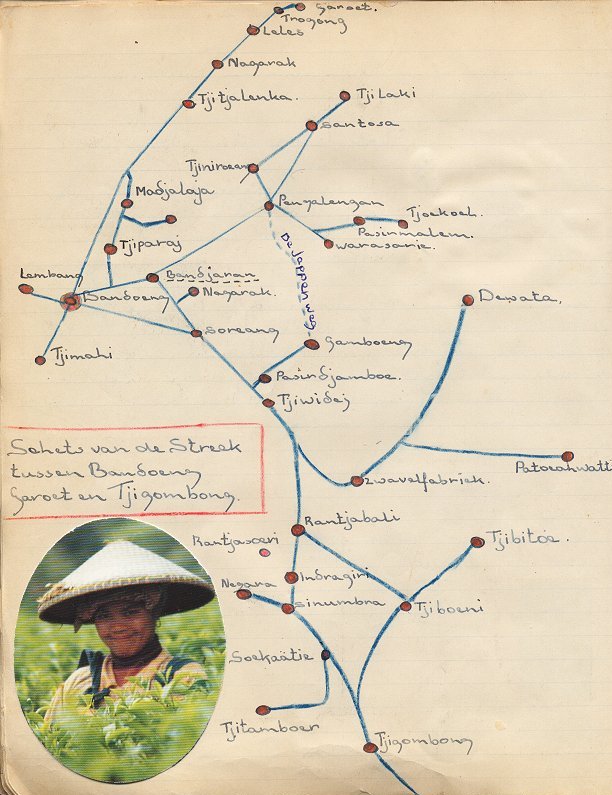 Garoet.
Trogong
Leles
Nagarak
Tjitjalenka.
Tjilaki
Santosa
Tjiniroean
Madjalaja
Pengalengan
Tjoekoel.
Pasirmalem.
Warasarie.
Tjiparaj
Lembang
Bandjaran
Bandoeng
Nagarak.
Dewata.
Soreang
Gamboeng
Tjimahi
Pasirdjamboe.
Tjiwidej
Schets van de Streek
tussen Bandoeng
Garoet en Tjigombong.
Patoeahwatti
Zwavelfabriek.
Rantjabali
Rantjasoeri
Tjibitoe.
Negara
Indragiri
Sinumbra
Tjiboeni
Soekaätie
Tjitamboer
Tjigombong